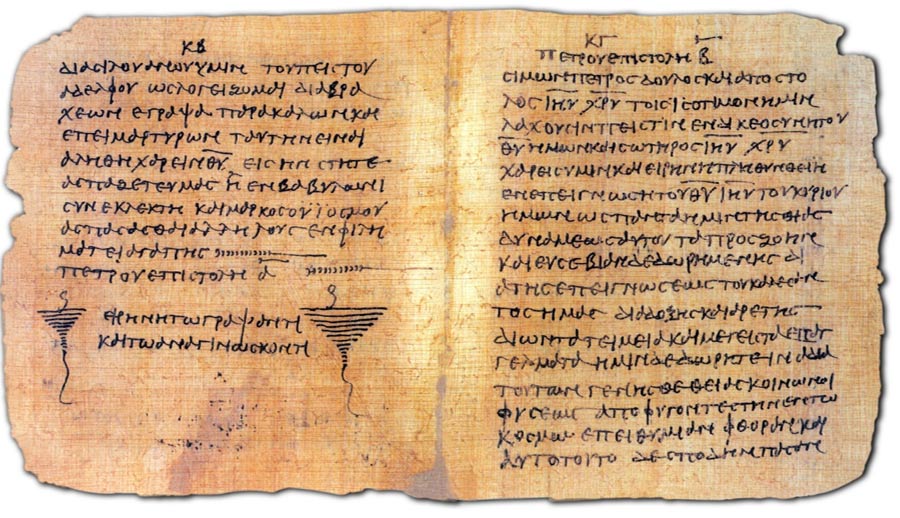 ΚΒ
διασιλουανουυμιν τουπειστου
αδελφου ωσλογειζομαι διαβρα
χεων εγραψα παρακαλωνκαι
επειμαρτυρων ταυτηνειναι
αληθηχαρειν θ̅υ̅ εισ ην στητε
ασπαζετευμας η ενβαβυλωνι
συνεκλεκτη καιμαρκοσουϊοσμου
ασπασασθαιαλληλους ενφιλη
ματειαγαπης
πετρουεπιστολη α̅
ειρηνητωγραψαντι
καιτωαναγινωσκοντι
ΚΓ
πετρουεπιστολη β̅
σιμωνπετρος δουλοσκαιαποστο
λος ι̅η̅υ̅ χ̅ρ̅υ̅ τοισισοτιμονημιν
λαχουσινπειστιν ενδικεοσυνητου
θ̅υ̅ ημωνκαισωτηρος ι̅η̅υ̅ χ̅ρ̅υ̅
χαρεισυμινκαιειρηνηπληθυνθειη
ενεπειγνωσητουθ̅υ̅ ι̅η̅υ̅ τουκυριου
ημων ωσπανταημιντησθιας
δυναμεωσαυτου ταπροσζωην
καιευσεβιανδεδωρημενης δι
ατησεπειγνωσεωστουκαλεσαν
τοσημας διαδοξησκαιαρετης
διωντατειμειακαιμεγεισταεπαγ
γελματα ημινδεδωρητειναδια
τουτων γενησθεθειασκοινωνοι
φυσεως αποφυγοντεστηνεντω
κοσμω επειθυμιαν φθορανκαι
αυτοτουτο δεσπουδηνπασαν